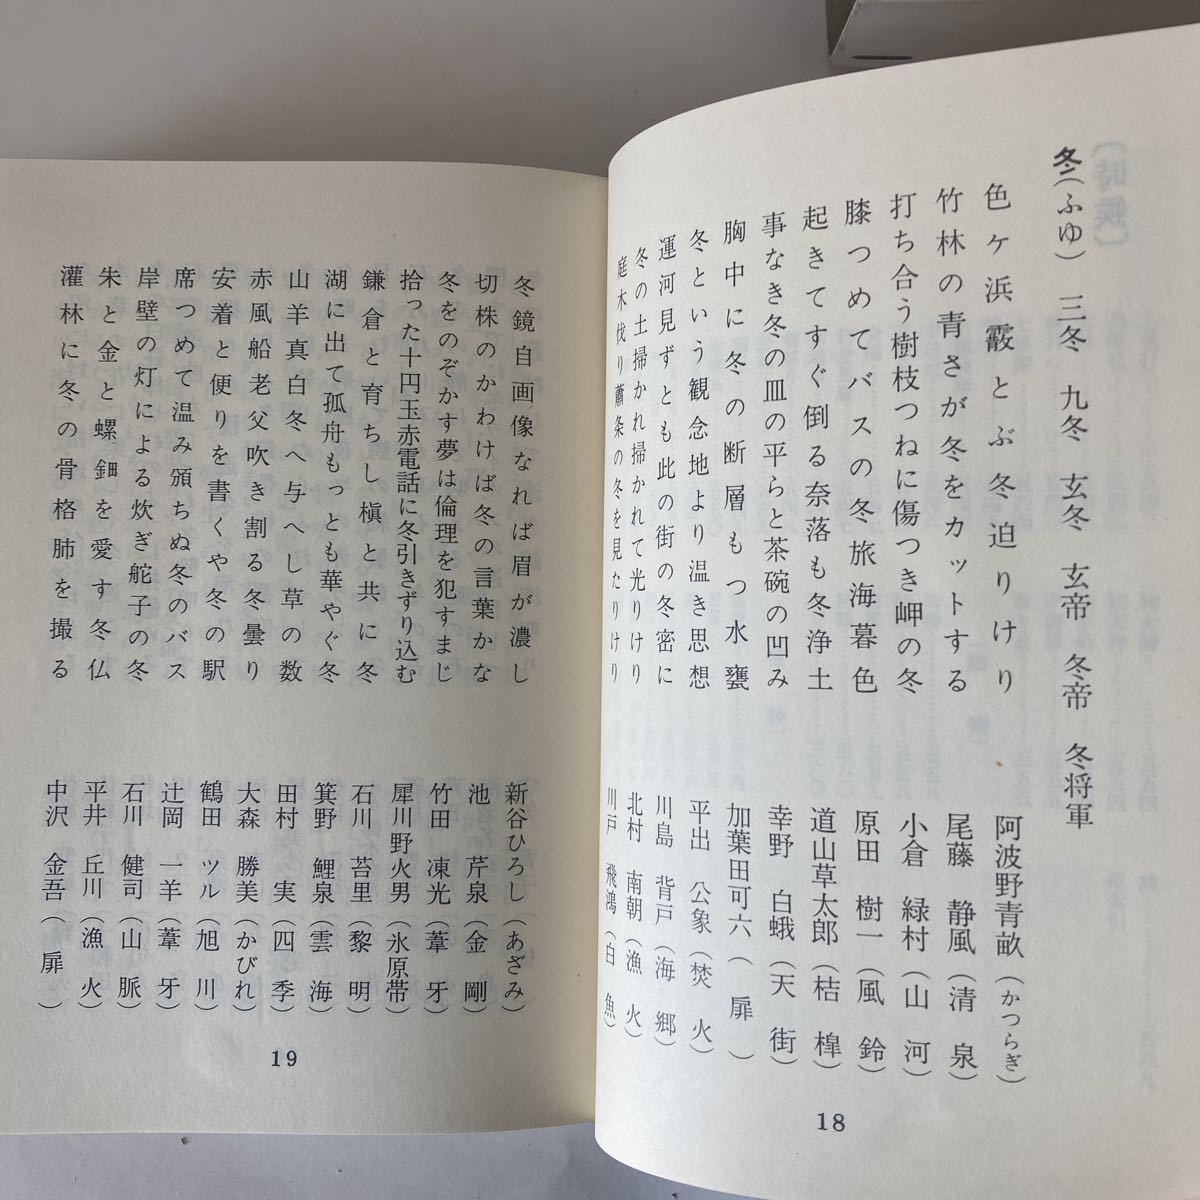 冬(ふゆ) 三冬 九冬 玄冬 玄帝 冬帝 冬将軍
色ヶ浜霰とぶ冬迫りけり 阿波野青畝(かつらぎ)
竹林の青さが冬をカットする 尾藤静風(清泉)
打ち合う樹枝つねに傷つき岬の冬 小倉緑村(山河)
膝つめてバスの冬旅海暮色 原田樹一(風鈴)
起きてすぐ倒る奈落も冬浄土 道山草太郎(桔槹)
事なき冬の皿の平らと茶碗の凹み 幸野白蛾(天街)
胸中に冬の断層もつ水甕 加葉田可六(扉)
冬という観念地より温き思想 平出公象(焚火)
運河見ずとも此の街の冬密に 川島背戸(海郷)
冬の土掃かれ掃かれて光りけり 北村南朝(漁火)
庭木伐り蕭条の冬を見たりけり 川戸飛鴻(白魚)
18
冬鏡自画像なれば眉が濃し 新谷ひろし(あざみ)
切株のかわけば冬の言葉かな 池芹泉(金剛)
冬をのぞかす夢は倫理を犯すまじ 竹田凍光(葦牙)
拾った十円玉赤電話に冬引きずり込む 犀川野火男(氷原帯)
鎌倉と育ちし槇と共に冬 石川苔里(黎明)
湖に出て孤舟もっとも華やぐ冬 箕野鯉泉(雲海)
山羊真白冬へ与へし草の数 田村実(四季)
赤風船老父吹き割る冬曇り 大森勝美(かびれ)
安着と便りを書くや冬の駅 鶴田ツル(旭川)
席つめて温み頒ちぬ冬のバス 辻岡一羊(葦牙)
岸壁の灯による炊ぎ舵子の冬 石川健司(山脈)
朱と金と螺鈿を愛す冬仏 平井丘川(漁火)
灌林に冬の骨格肺を撮る 中沢金吾(扉)
19